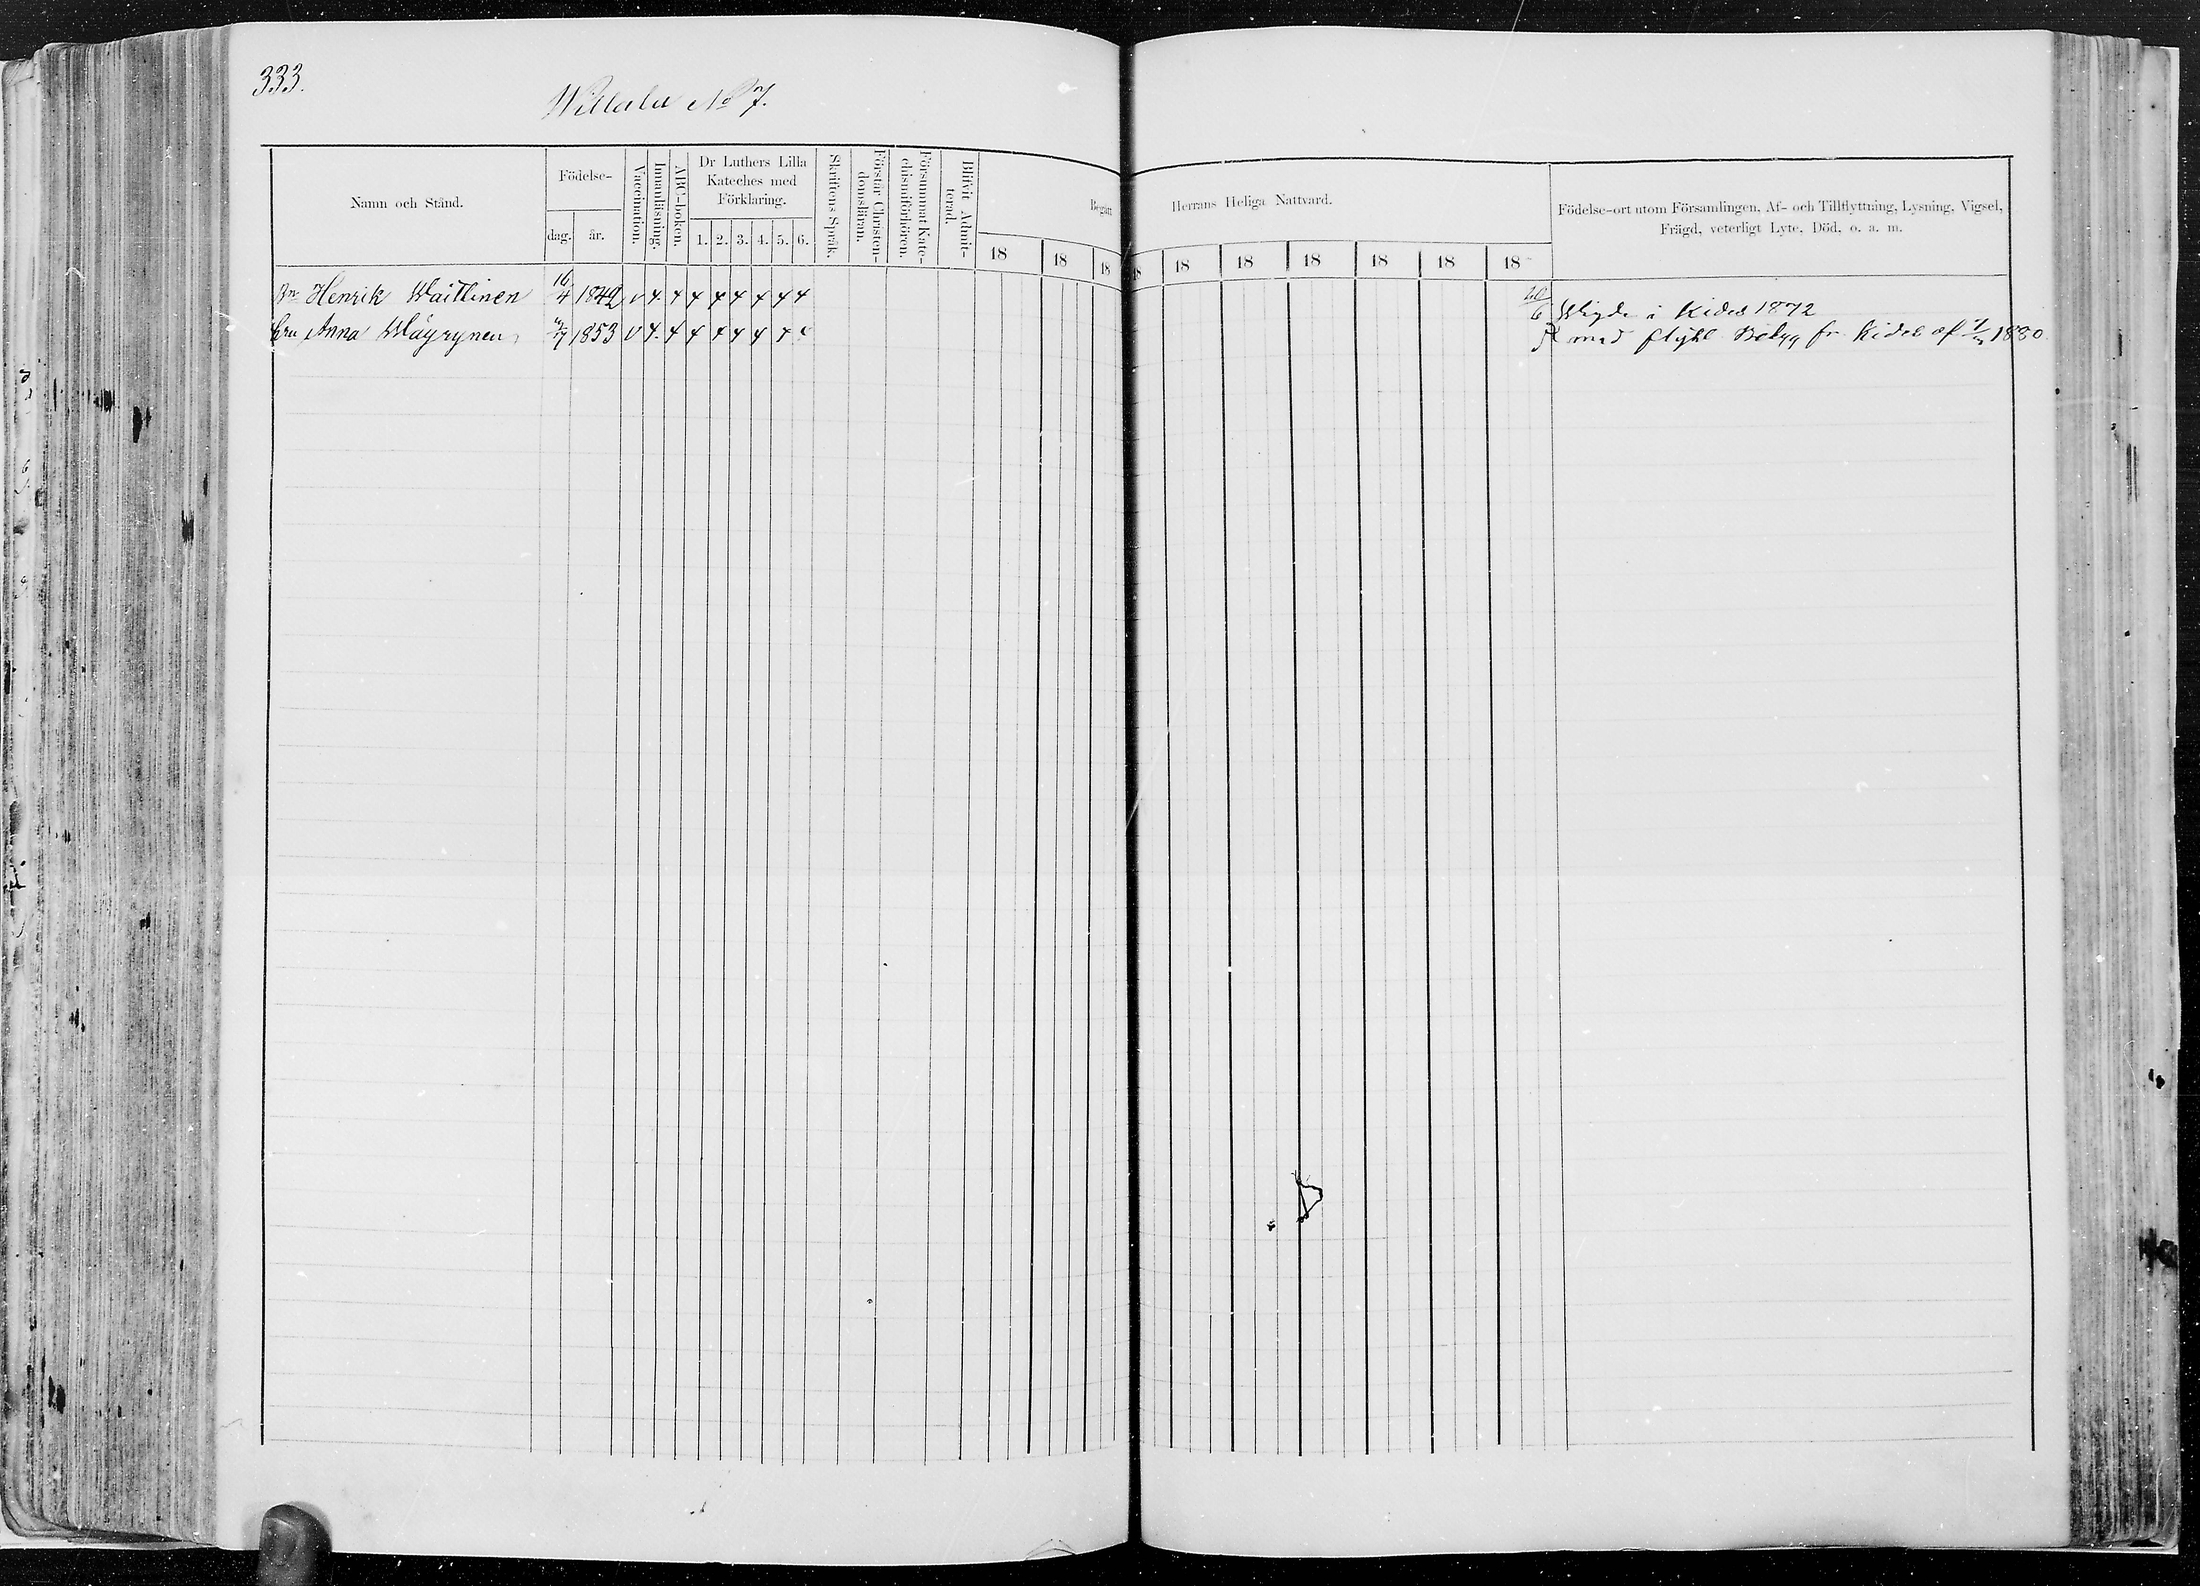 333.
Willala No 7.
Namn och Stånd.
Födelse-
dag. år.
Vaccination.
Innanläsning.
ABC-boken.
Dr Luthers Lilla
Kateches med
Förklaring.
1. 2. 3. 4. 5. 6.
Skriftens Språk.
Förstår Christen-
domsläran.
Försummat Kate-
chismiförhören.
Blifvit Admit-
terad.
Begått Herrans Heliga Nattvard.
18 18 18 18 18 18 18 18 18 18
Födelse-ort utom Församlingen, Af- och Tillflyttning, Lysning, Vigsel,
Frägd, veterligt Lyte, Död, o. a. m.
Henrik Waittinen 16/4 1842 v 4 4 4 4 4 4 4 4 Wigde i Kides 1872
Anna Wäyrynen 1853 v 4 4 4 4 4 4 4 med fr Kides af 1880